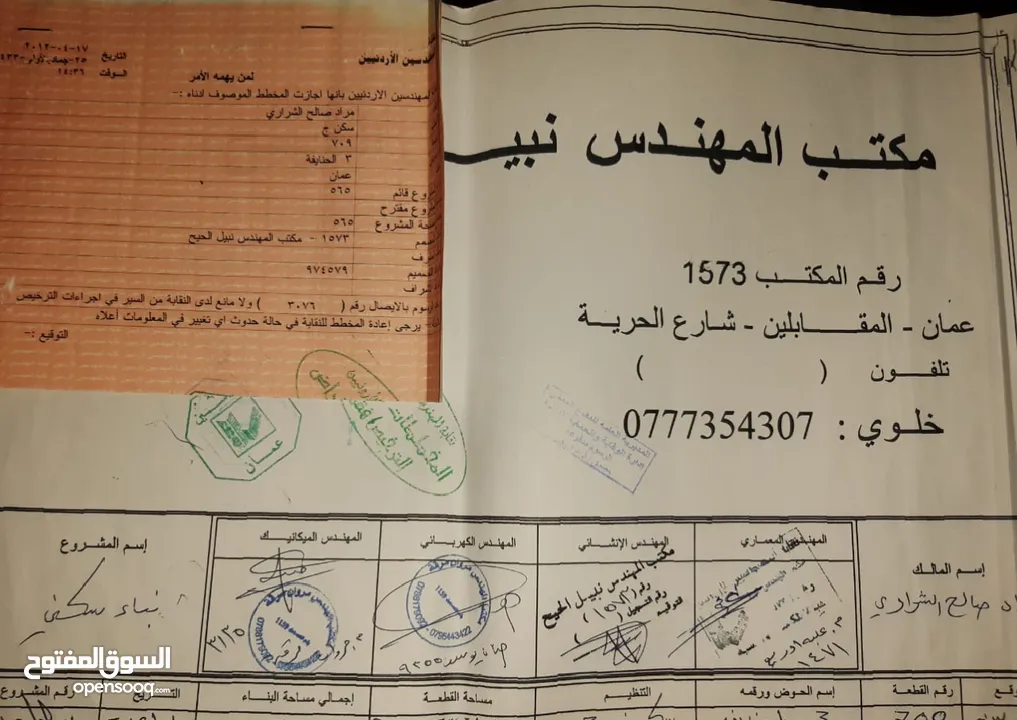 دسين الأردنيين
التاريخ ٢٠١٢-٠٤-١٧
الوقت ١٤:٣٦
لمن يهمه الأمر
مهندسين الاردنيين بانها اجازت المخطط الموصوف ادناه :-
مراد صالح الشراري
سكن ج
٧٠٩
٣ الحنايفة
عمان
وع قائم ٥٦٥
وع مقترح
حة المشروع ٥٦٥
١٥٧٣ - مكتب المهندس نبيل الحيح
٩٧٤٥٧٩
وم بالايصال رقم ( ٣٠٧٦ ) ولا مانع لدى النقابة من السير في اجراءات الترخيص
يرجى إعادة المخطط للنقابة في حالة حدوث اي تغيير في المعلومات أعلاه
التوقيع :-
مكتب المهندس نبيـ
رقم المكتب 1573
عمان - المقابلين - شارع الحرية
تلفون ( )
خلوي : 0777354307
عمان
إسم المالك
المهندس المعماري
المهندس الإنشائي
المهندس الكهربائي
المهندس الميكانيك
إسم المشروع
صالح الشراري
١٤٧١
مكتب المهندس نبيل الحيح
0795443422
٩٢٥٥
٣١٢٥
بناء سكني
رقم القطعة
إسم الحوض ورقمه
التنظيم
مساحة القطعة
إجمالي مساحة البناء
التاريخ
رقم المشروع
السوق المفتوح
opensooq.com